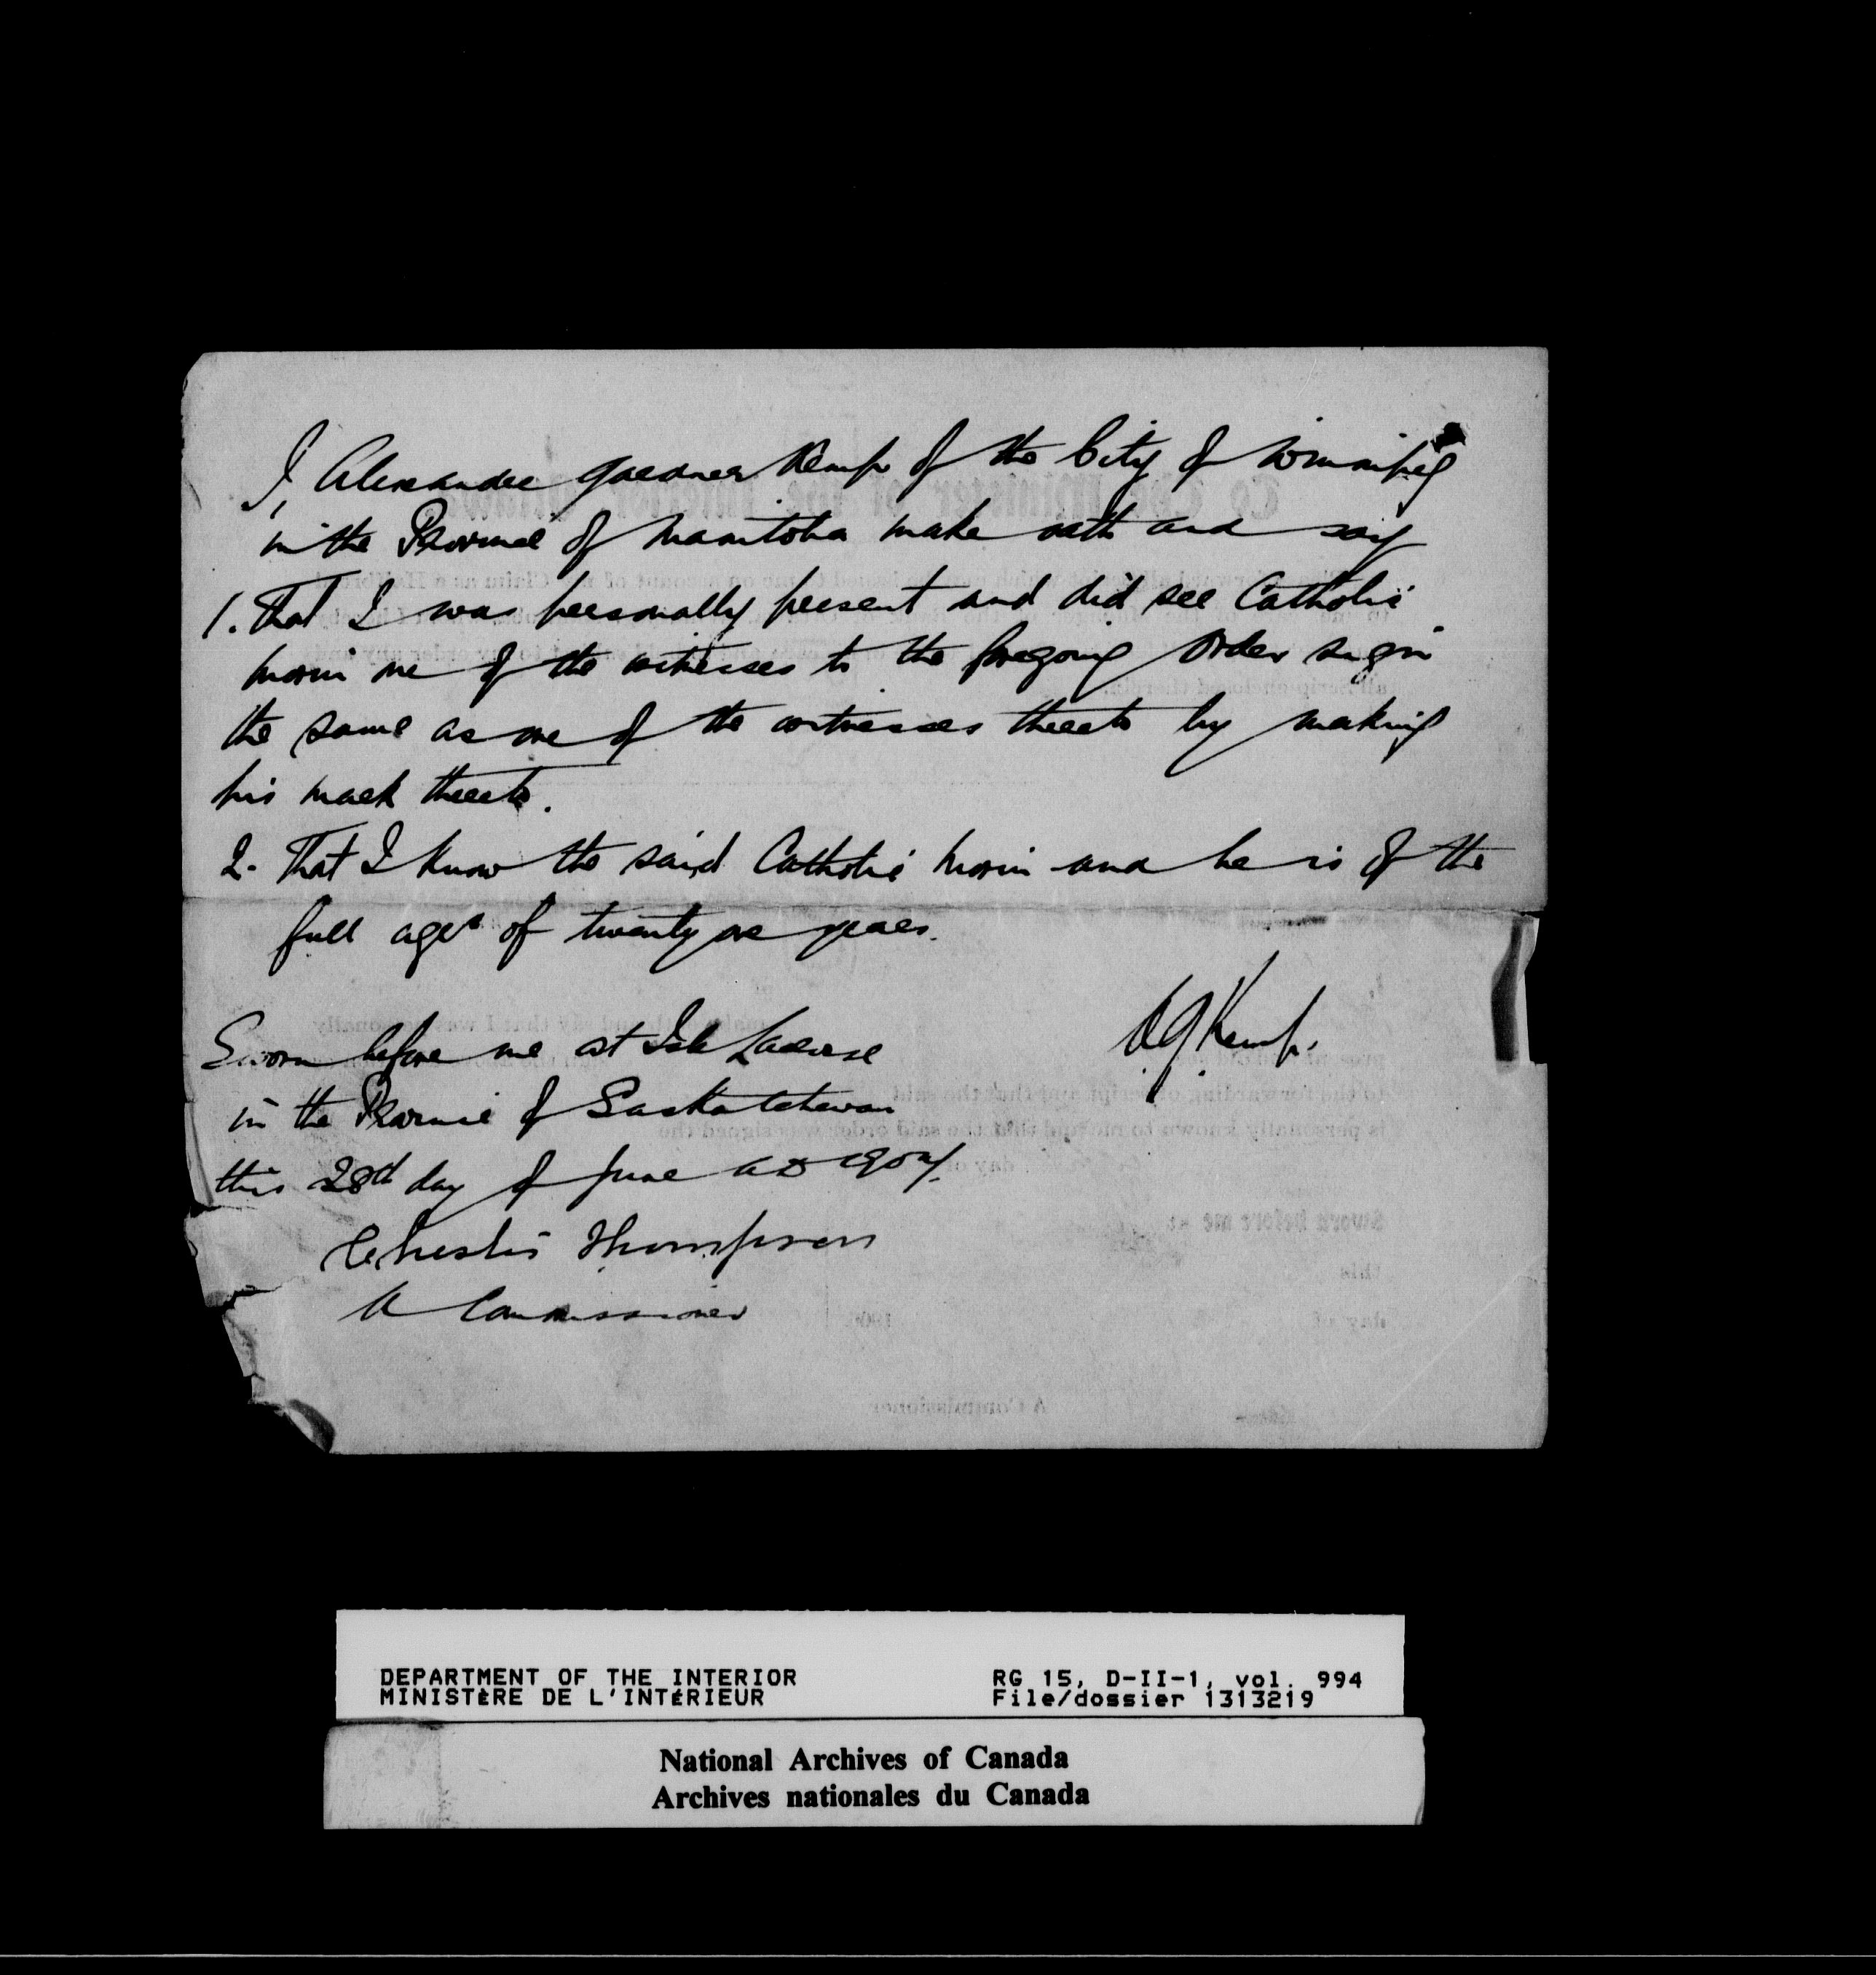 I, Alexander Gardner Kemp of the City of Winnipeg
in the Province of Manitoba make oath and say
1. That I was personally present and did see Catholic
Morin one of the witnesses to the foregoing order sign
the same as one of the witnesses thereto by making
his mark thereto.
2. That I know the said Catholic Morin and he is of the
full age of twenty one years.
Sworn before me at Isle Lacrosse
in the Province of Saskatchewan
this 28th day of June AD 1907.
A G Kemp.
Thompson
A Commissioner
To The Minister of the Interior
Sworn before me at
this
day of
A Commissioner
DEPARTMENT OF THE INTERIOR
MINISTÈRE DE L'INTÉRIEUR
RG 15, D-II-1, vol. 994
File/dossier 1313219
National Archives of Canada
Archives nationales du Canada